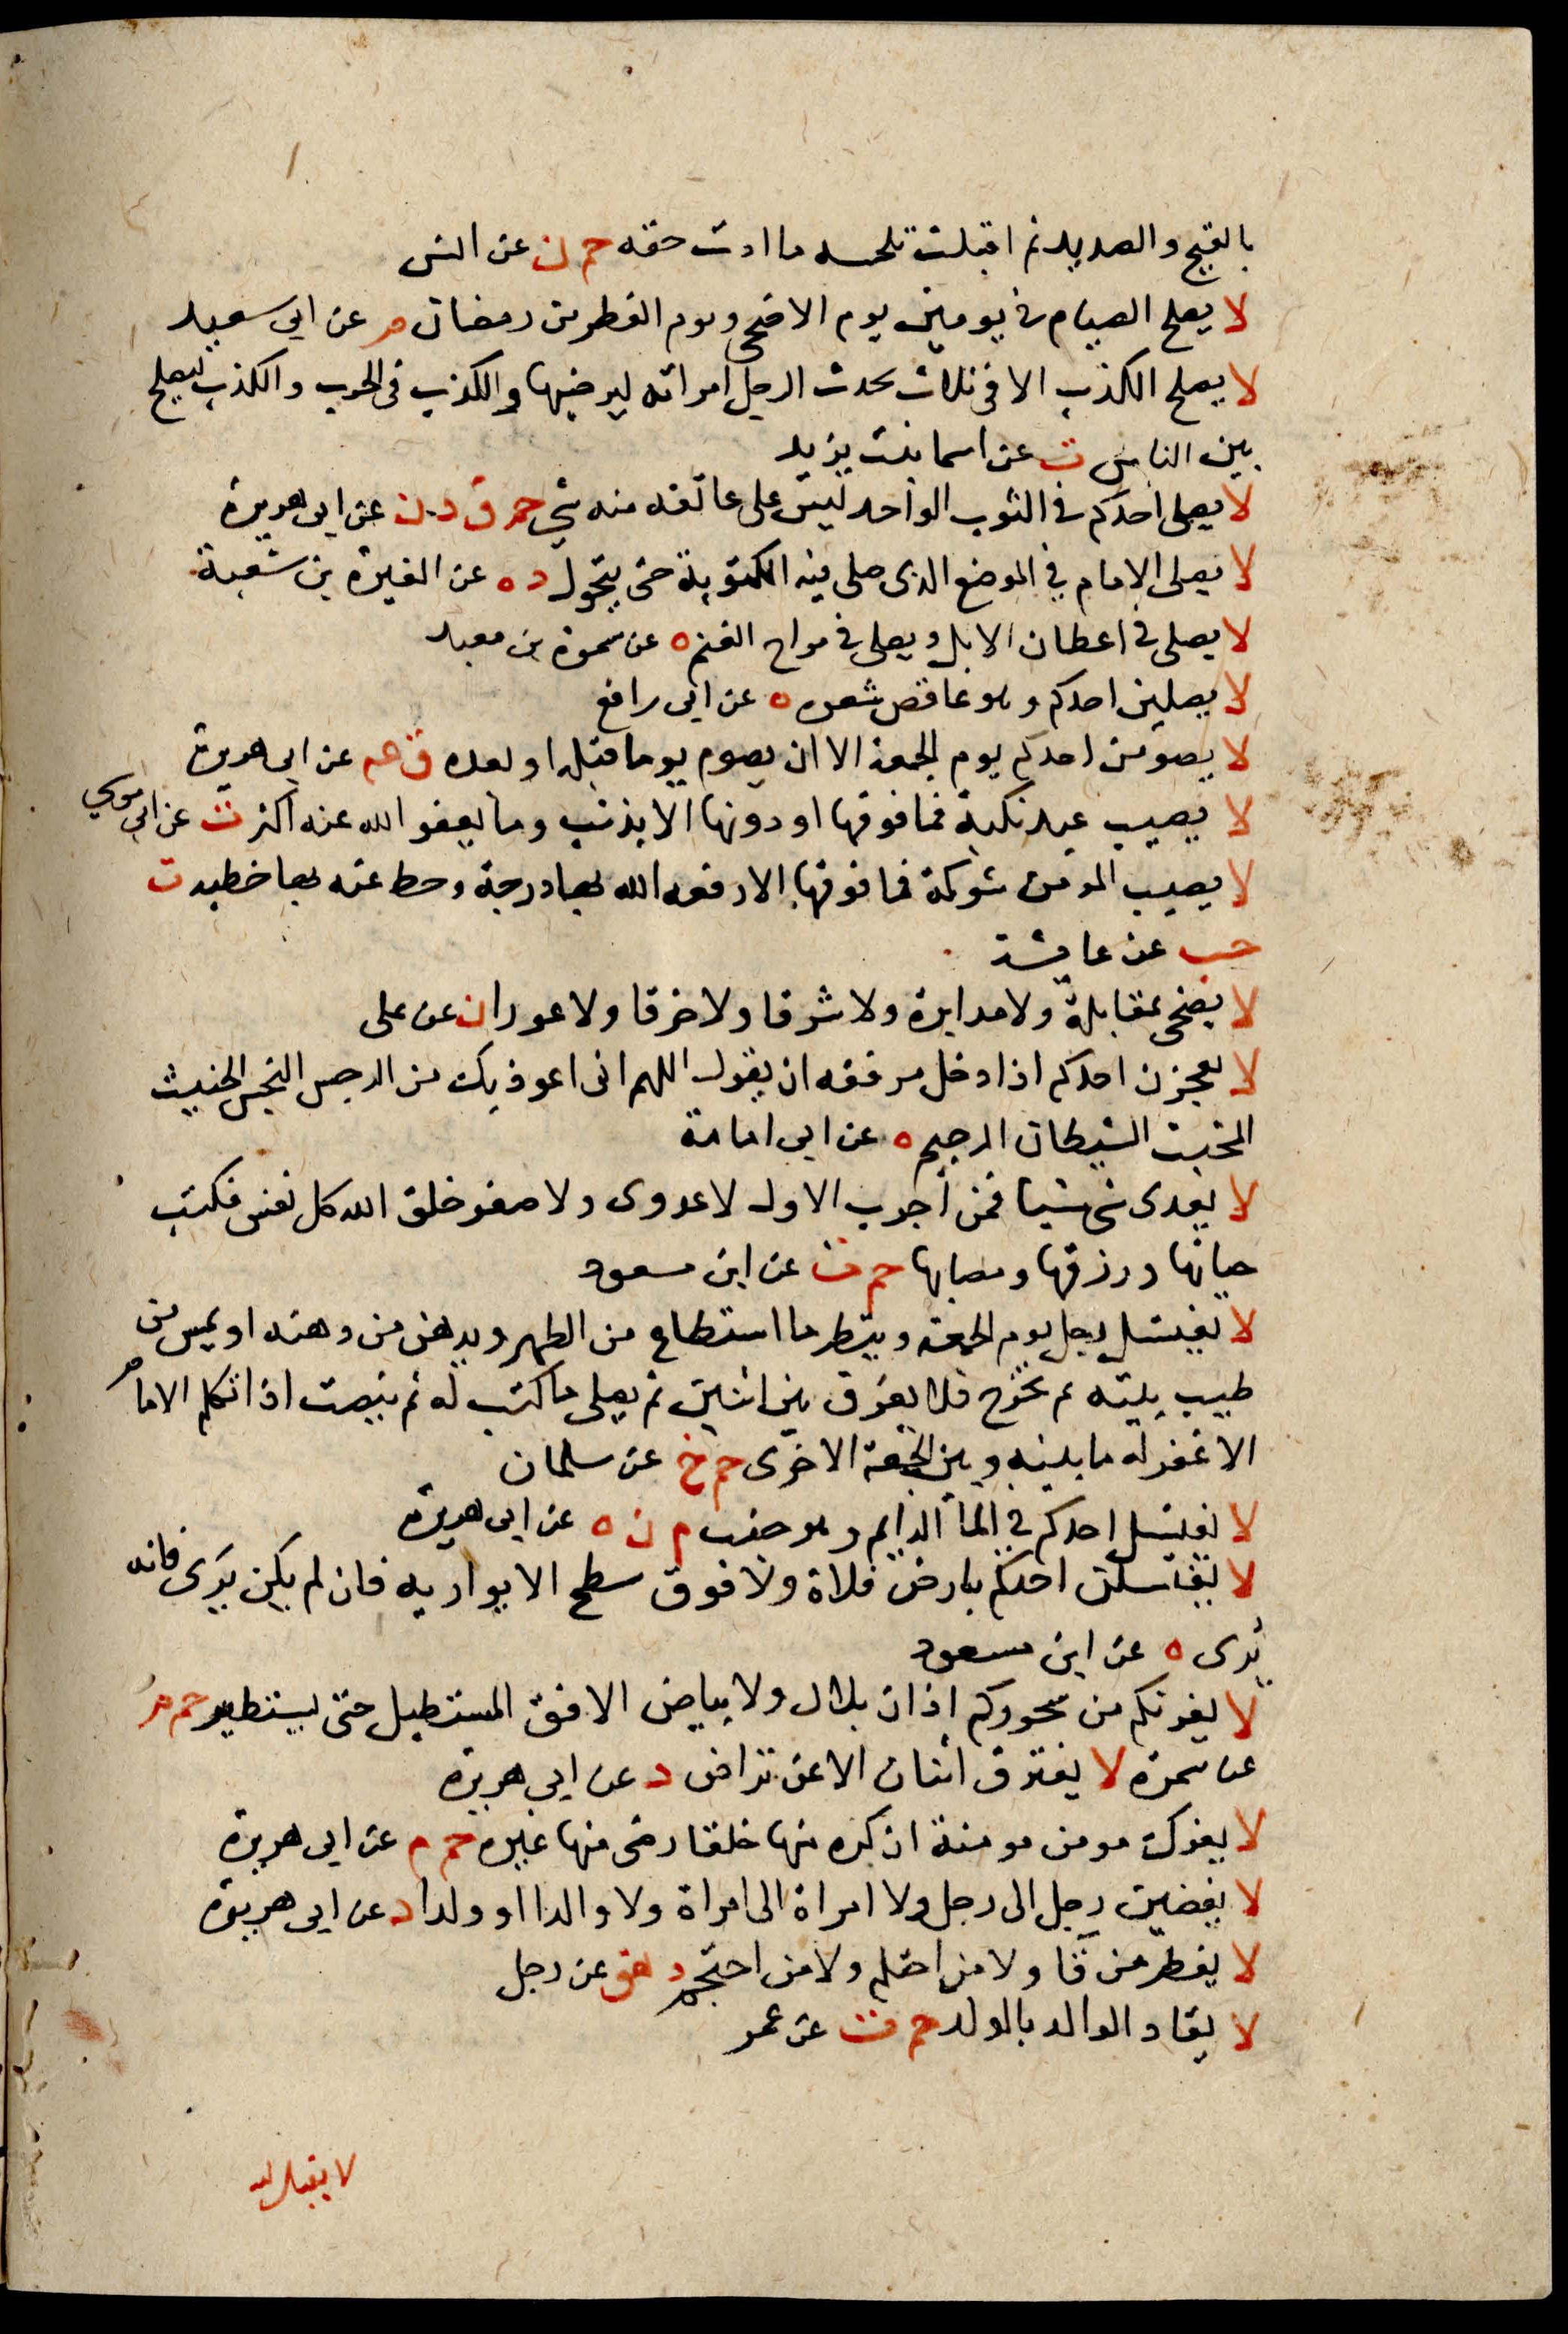 بالقيح والصديد ثم اقبلت تلحسه ما ادت حقه حم ن عن انس
لا يصلح الصيام في يومين يوم الاضحى ويوم الفطر من رمضان م عن ابي سعيد
لا يصلح الكذب الا في ثلاث يحدث الرجل امراته ليرضيها والكذب في الحرب والكذب ليصلح
بين الناس ت عن اسما بنت يزيد
لا يصلى احدكم في الثوب الواحد ليس على عاتقه منه شي حم ق د ن عن ابي هريرة
لا يصلى الامام في الموضع الذى صلى فيه المكتوبة حتى يتحول د ه عن المغيرة بن شعبة
لا يصلى في اعطان الابل ويصلى في مراح الغنم ه عن سمرة بن معبد
لا يصلين احدكم وهو عاقص شعره ه عن ابى رافع
لا يصومن احدكم يوم الجمعة الا ان يصوم يوما قبله او بعده ق عم عن ابي هريرة
لا يصيب عبد نكبة فما فوقها او دونها الا بذنب وما يعفو الله عنه اكثر ت عن ابي موسي
لا يصيب المومن شوكة فما فوقها الا رفعه الله بها درجة وحط عنه بها خطيه ت
حب عن عايشة
لا يضحى بمقابلة ولا مدابرة ولا شرقا ولا خرقا ولا عورا ن عن على
لا يعجزن احدكم اذا دخل مرفقه ان يقول اللهم انى اعوذ بك من الرجس النجس الخبيث
المخبث الشيطان الرجيم ه عن ابى امامة
لا يعدى شى شيا فمن أجرب الاول لا عدوى ولا صفر خلق الله كل نفس فكتب
حياتها ورزقها ومصابها حم ت عن ابن مسعود
لا يغتسل رجل يوم الجمعة ويتطهر ما استطاع من الطهر ويدهن من دهنه او يمس من
طيب بيته ثم يخرج فلا يفرق بين اثنين ثم يصلى ما كتب له ثم ينصت اذا تكلم الامام
الا غفر له ما بينه وبين الجمعة الاخرى حم خ عن سلمان
لا يغتسل احدكم في الما الدايم وهو جنب م ن ه عن ابى هريرة
لا يغتسلن احدكم بارض فلاة ولا فوق سطح لا يواريه فان لم يكن يرى فانه
يرى ه عن ابن مسعود
لا يغرنكم من سحوركم اذان بلال ولا بياض الافق المستطيل حتى يستطير حم م
عن سمرة لا يفترق اثنان الا عن تراض د عن ابي هريرة
لا يفرك مومن مومنة ان كره منها خلقا رضى منها غيره حم م عن ابى هريرة
لا يفضين رجل الى رجل ولا امراة الى امراة ولا والدا او ولدا د عن ابى هريرة
لا يفطر من قا ولا من احتلم ولا من احتجم د هق عن رجل
لا يقاد الوالد بالولد حم ت عن عمر
لا يقبل الله